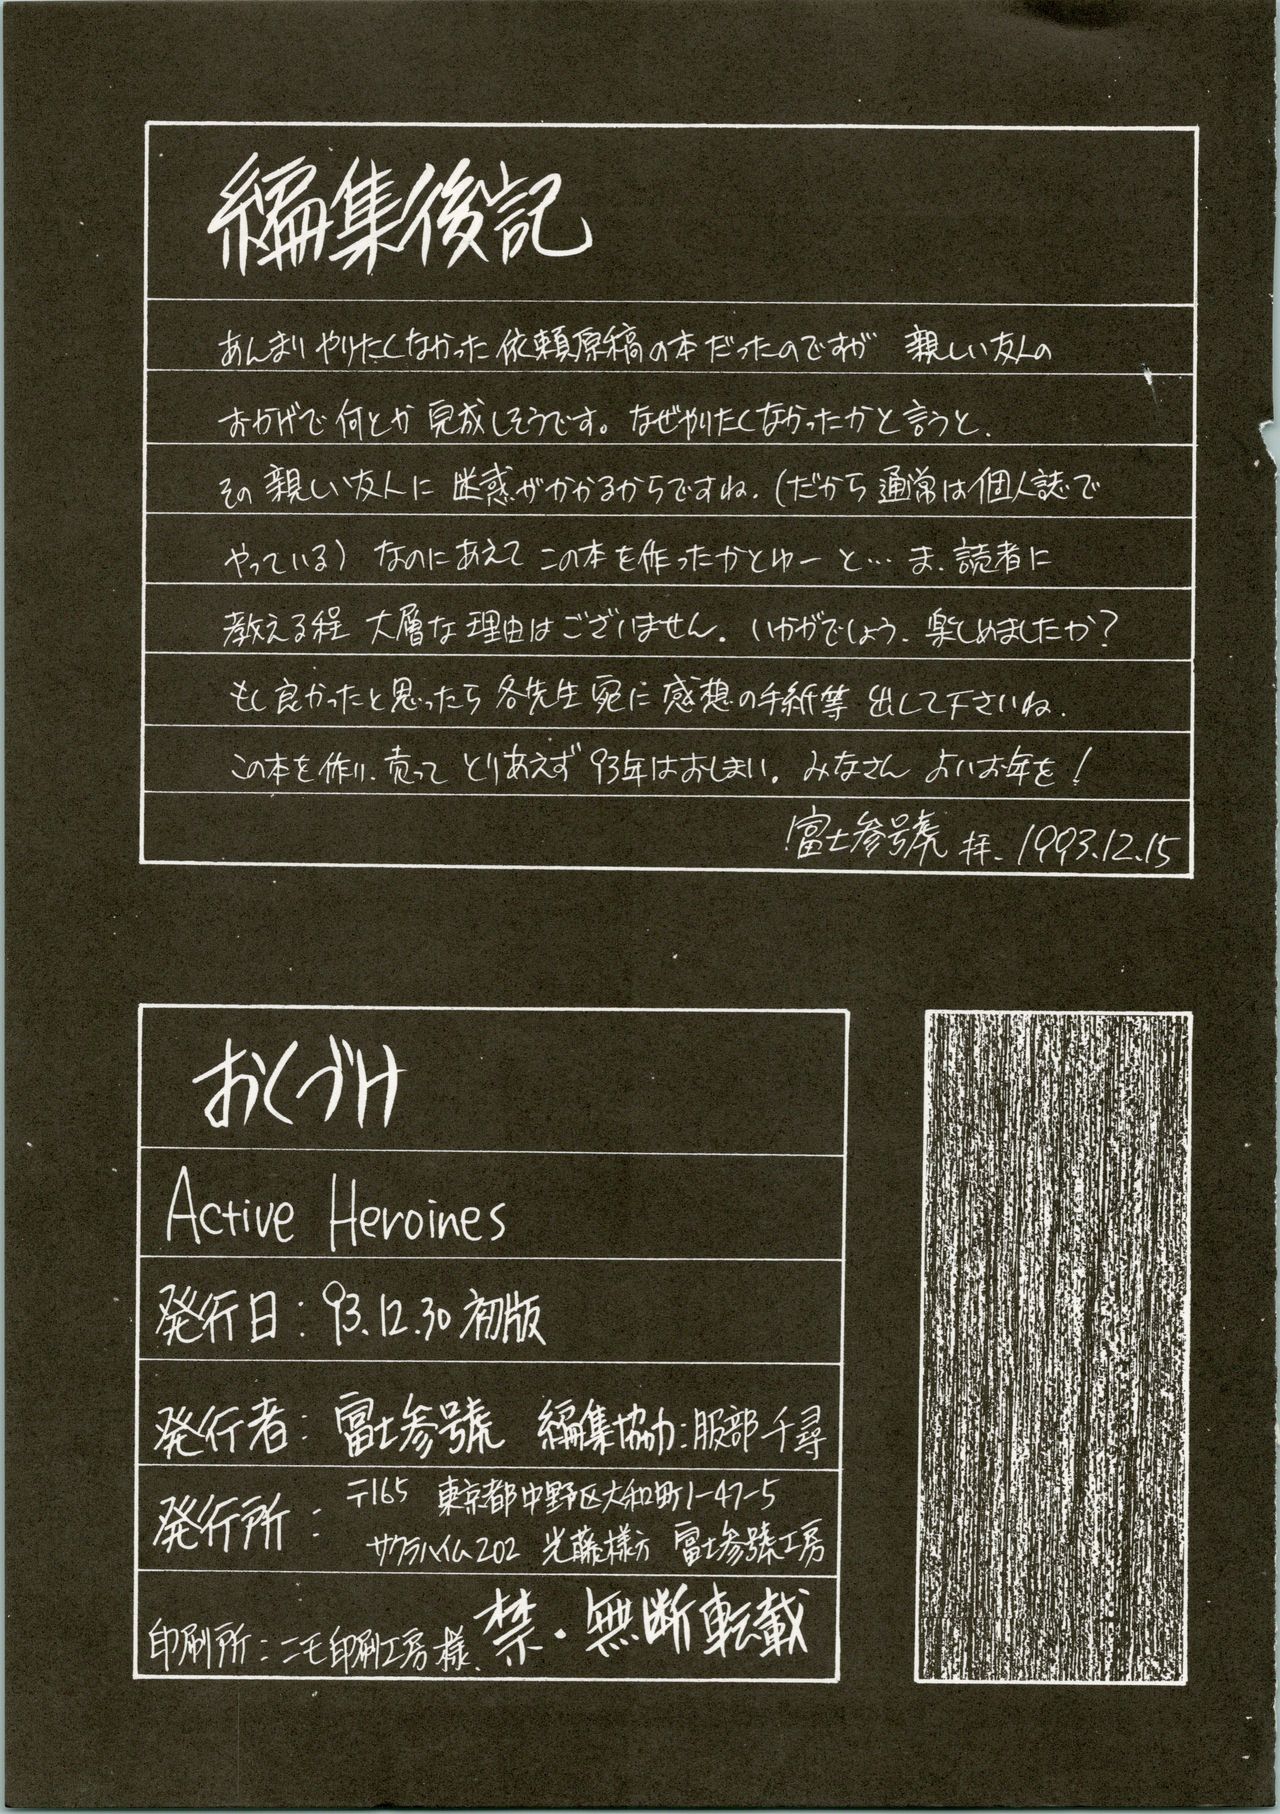 編集後記
あんまりやりたくなかった依頼原稿の本だったのですが 親しい友人の
おかげで何とか完成しそうです。なぜやりたくなかったかと言うと、
その親しい友人に迷惑がかかるからですね、(だから通常は個人誌で
やっている)なのにあえてこの本を作ったかとゆーと…ま、読者に
教える程大層な理由はございません。いかがでしょう、楽しめましたか?
もし良かったと思ったら各先生宛に感想の手紙等出して下さいね、
この本を作り、売ってとりあえず93年はおしまい。みなさんよいお年を!
富士参號 拝、1993.12.15
おくづけ
Active Heroines
発行日:93.12.30初版
発行者:富士参號 編集協力:服部千尋
発行所:〒165 東京都中野区大和町1-47-5
サクラハイム202 光藤様方 富士参號工房
印刷所:ニモ印刷工房様、禁・無断転載